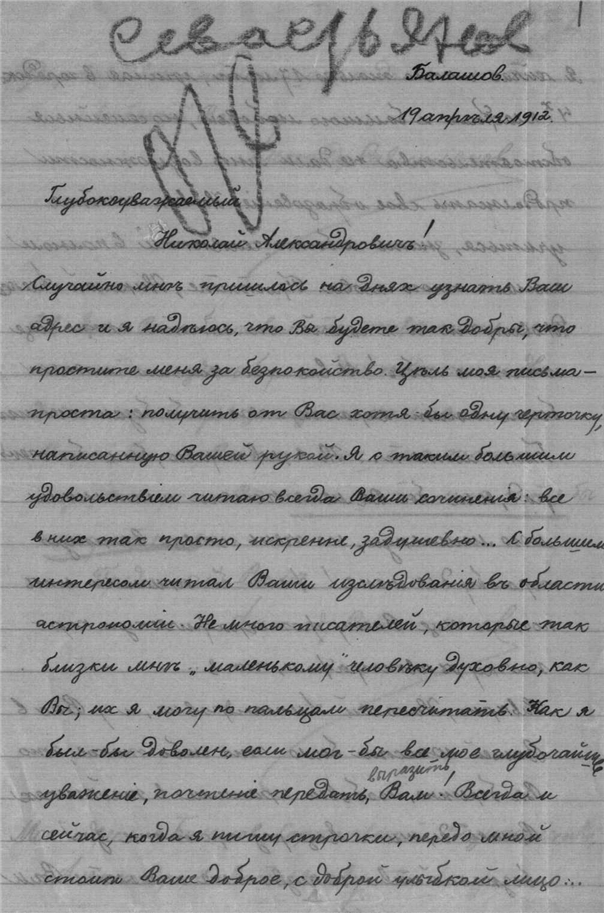 Севастьянов
1
Балашов.
19 апрѣля 1912.
Глубокоуважаемый
Николай Александровичъ!
Случайно мнѣ пришлось на днях узнать Ваш
адрес и я надѣюсь, что Вы будете так добры, что
простите меня за безпокойство. Цѣль моя письма—
проста: получить от Вас хотя бы одну черточку,
написанную Вашей рукой. Я с таким большим
удовольствіем читаю всегда Ваши сочиненія: все
в них так просто, искренне, задушевно... С большим
интересом читал Ваши изслѣдованія въ области
астрономіи. Не много писателей, которые так
близки мнѣ „маленькому" человѣку духовно, как
Вы; их я могу по пальцам пересчитать. Как я
был-бы доволен, если мог-бы все мое глубочайшее
выразить
уваженіе, почтеніе передать, Вам! Всегда и
сейчас, когда я пишу строчки, передо мной
стоит Ваше доброе, с доброй улыбкой лицо...